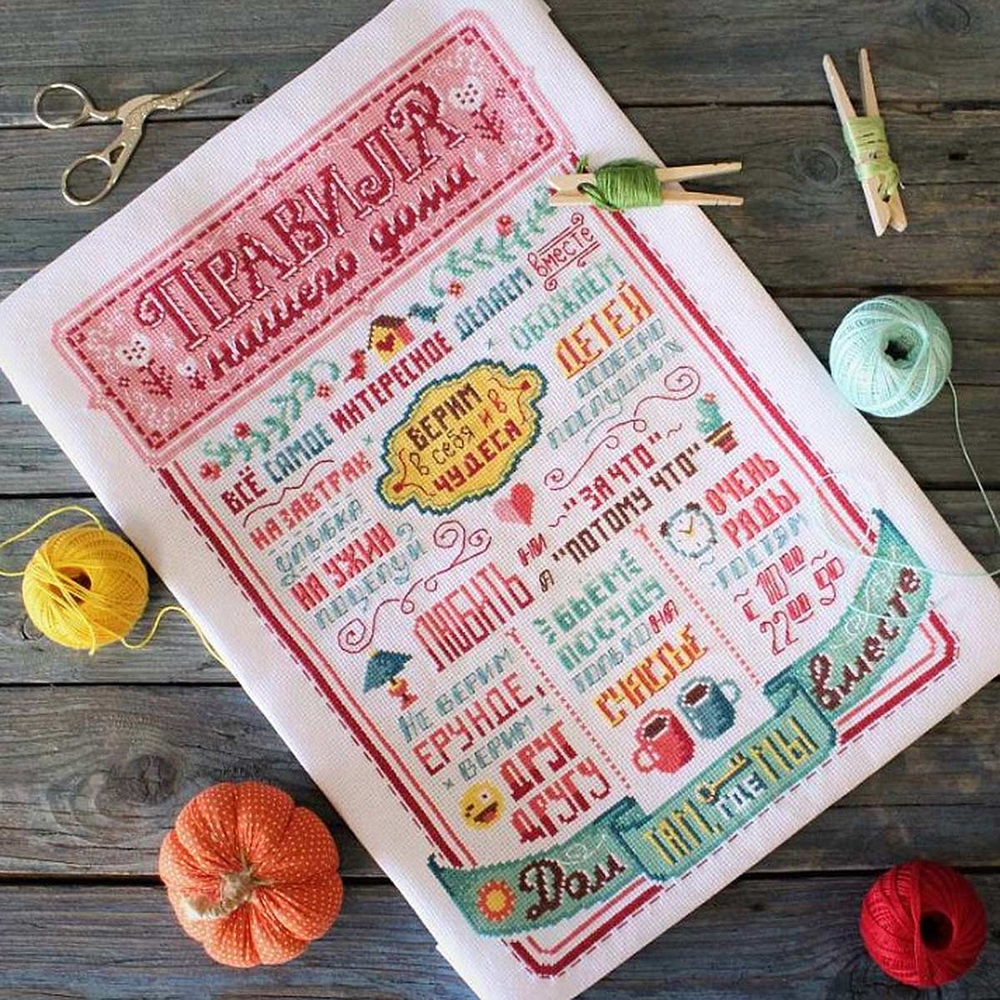 ПРАВИЛА
нашего дома
ВСЁ САМОЕ ИНТЕРЕСНОЕ ДЕЛАЕМ вместе
НА ЗАВТРАК
УЛЫБКА
НА УЖИН
ПОЦЕЛУЙ
ВЕРИМ
в себя и в
ЧУДЕСА
ОБОЖАЕМ
ДЕТЕЙ
ОСОБЕНО
ПОСЛУШНЫХ
ЛЮБИТЬ НИ "ЗА ЧТО"
А "ПОТОМУ ЧТО"
НЕ ВЕРИМ
ЕРУНДЕ,
ВЕРИМ
ДРУГ
ДРУГУ
БЬЁМ
ПОСУДУ
ТОЛЬКО НА
СЧАСТЬЕ
ОЧЕНЬ
РАДЫ
ГОСТЯМ
с 10 00
до 22 00
Дом ТАМ, ГДЕ МЫ вместе